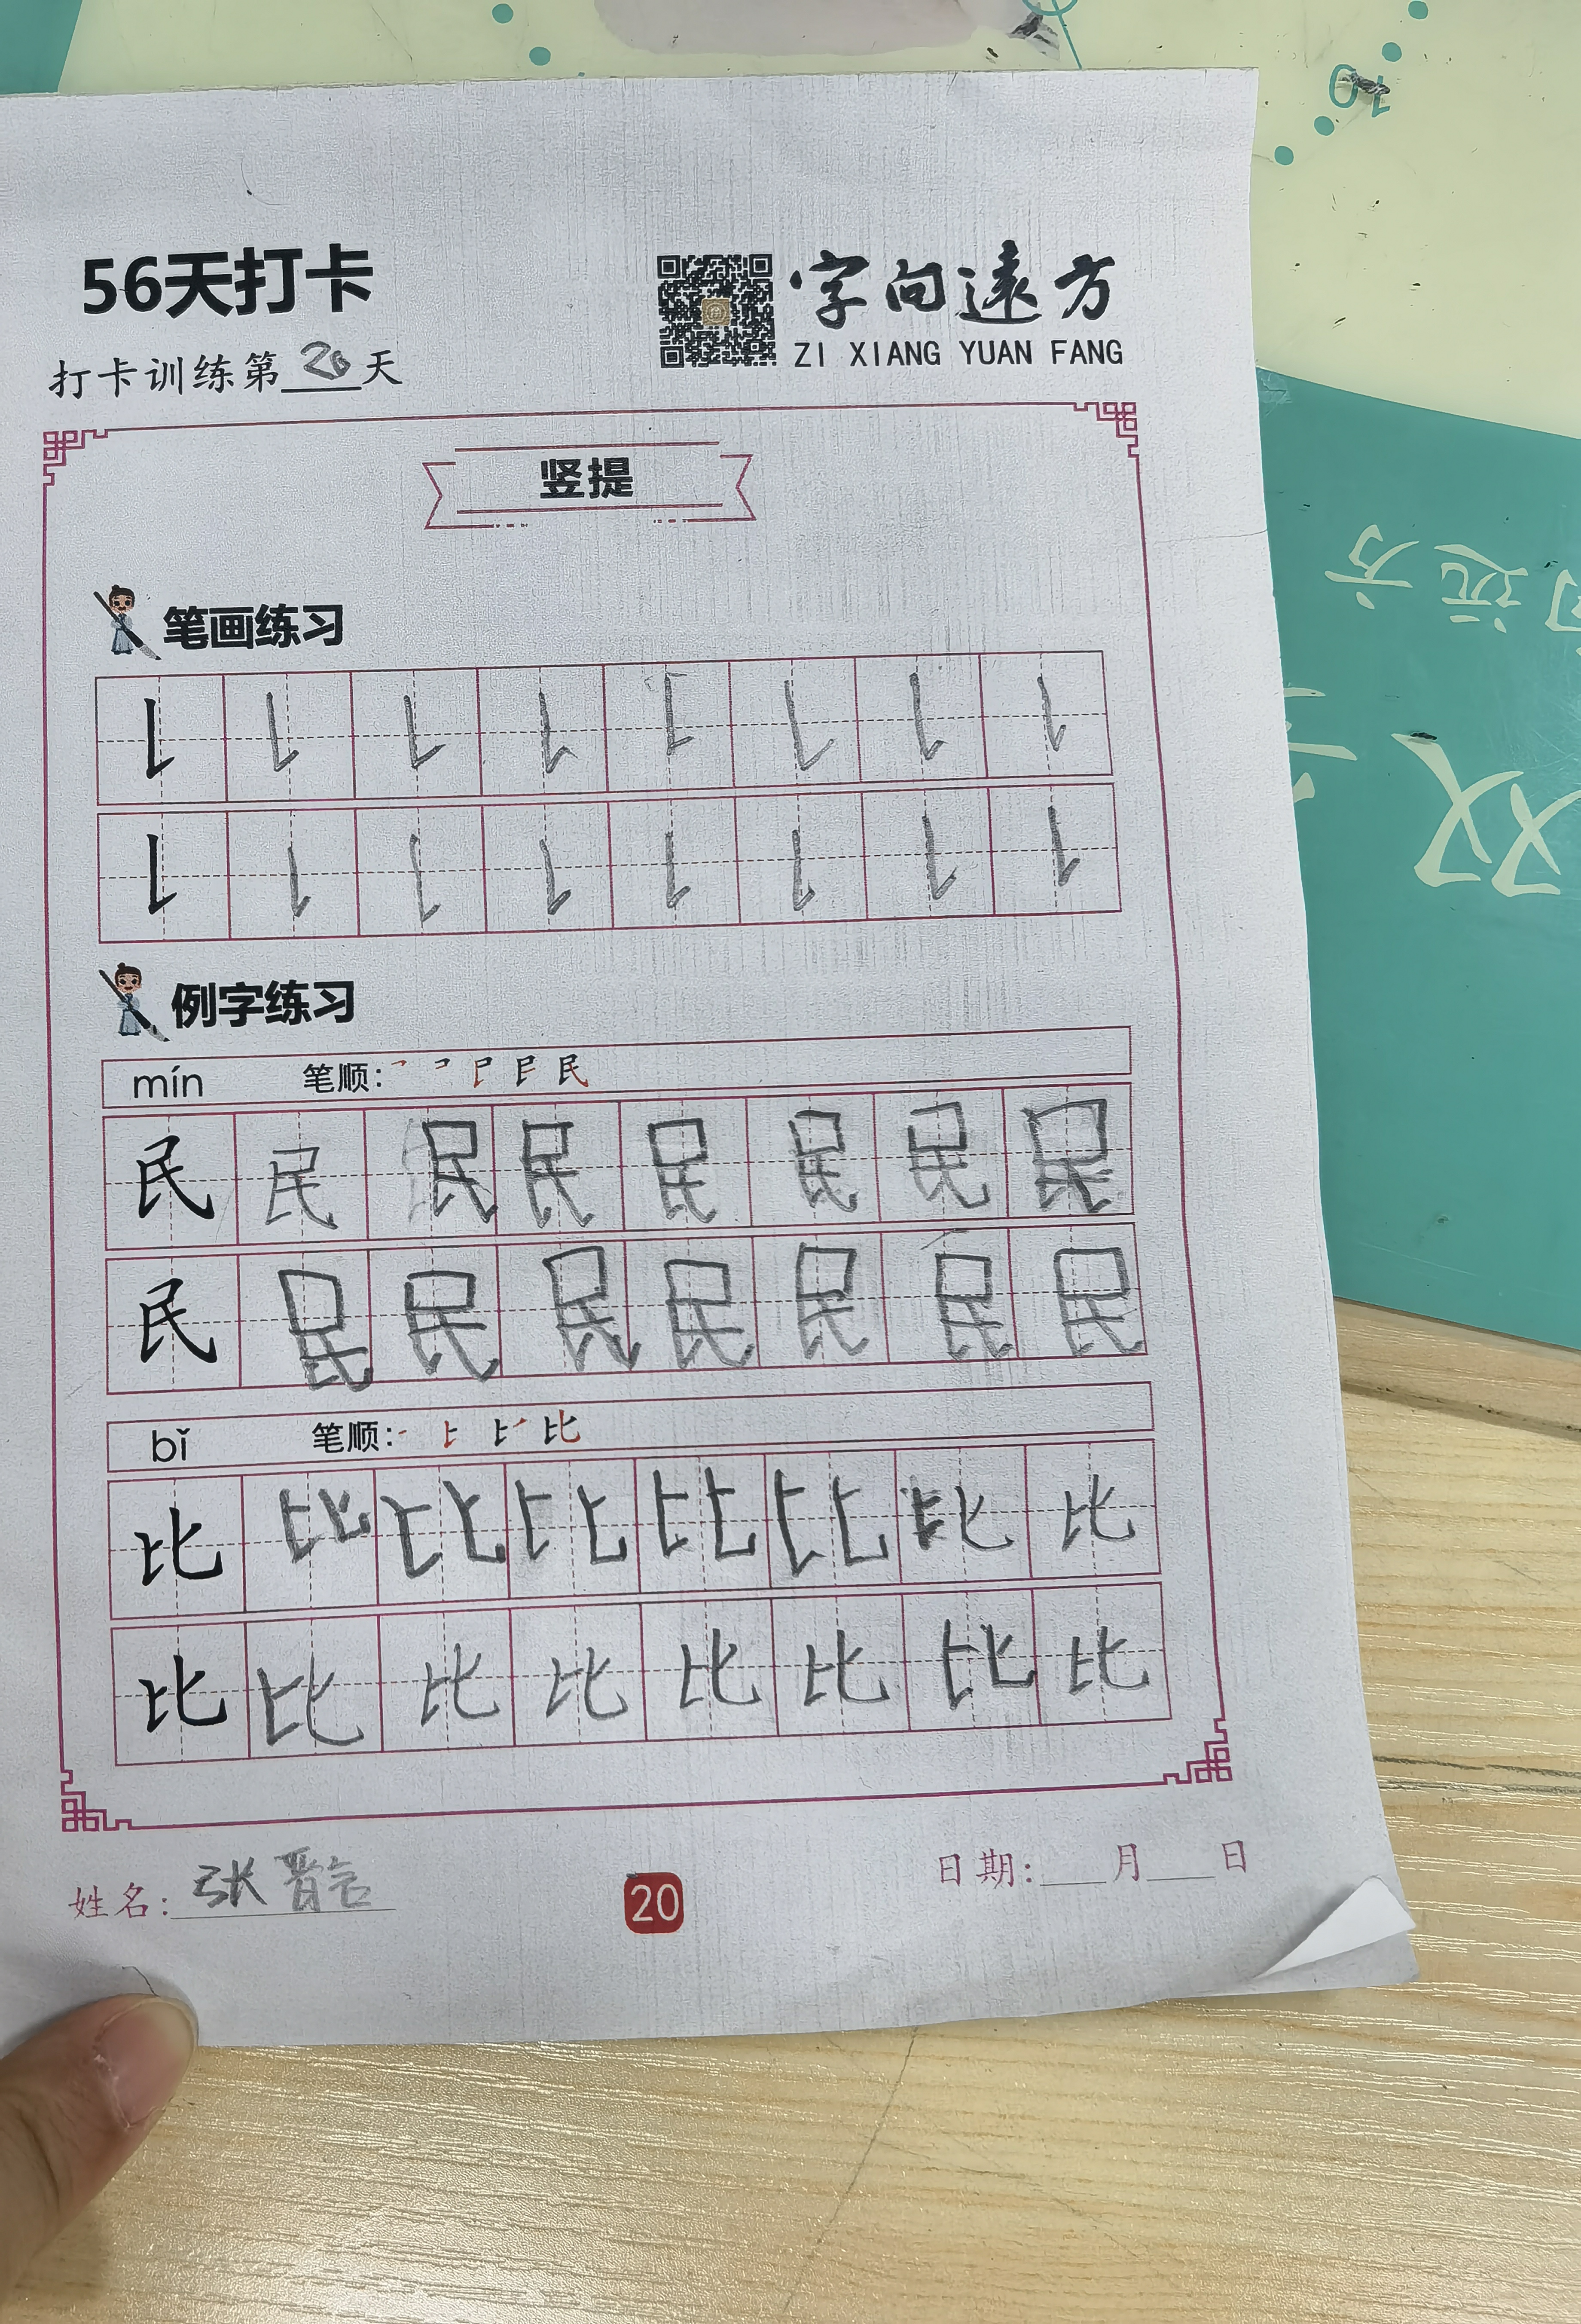 10
56天打卡
字向遠方
ZI XIANG YUAN FANG
打卡训练第20天
竖提
远方
双
笔画练习
例字练习
mín 笔顺:
民民民民民民民民
民民民民民民民民
bǐ 笔顺:
比比比比比比比比
比比比比比比比比
姓名:张晋言
20
日期:___月___日